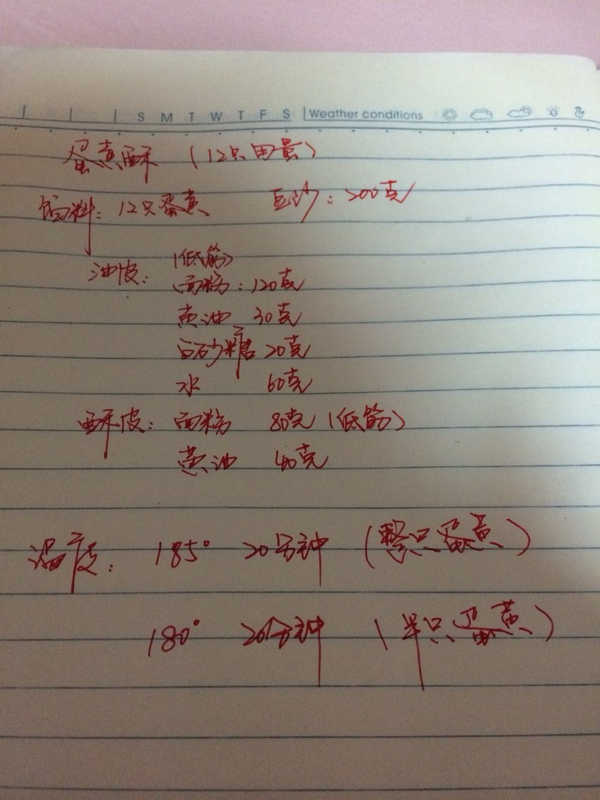 S M T W T F S Weather conditions
蛋黄酥 (12只用量)
馅料: 12只蛋黄 豆沙: 200克
油皮: (低筋)
面粉: 120克
黄油 30克
白砂糖 20克
水 60克
酥皮: 面粉 80克 (低筋)
黄油 40克
温度: 185° 20分钟 (整只蛋黄)
180° 20分钟 (半只蛋黄)